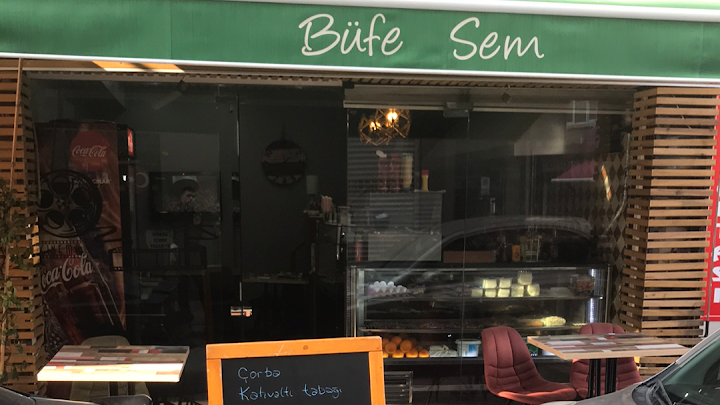 Büfe Sem
Coca-Cola
Coca-Cola
Çorba
Kahvaltı tabağı